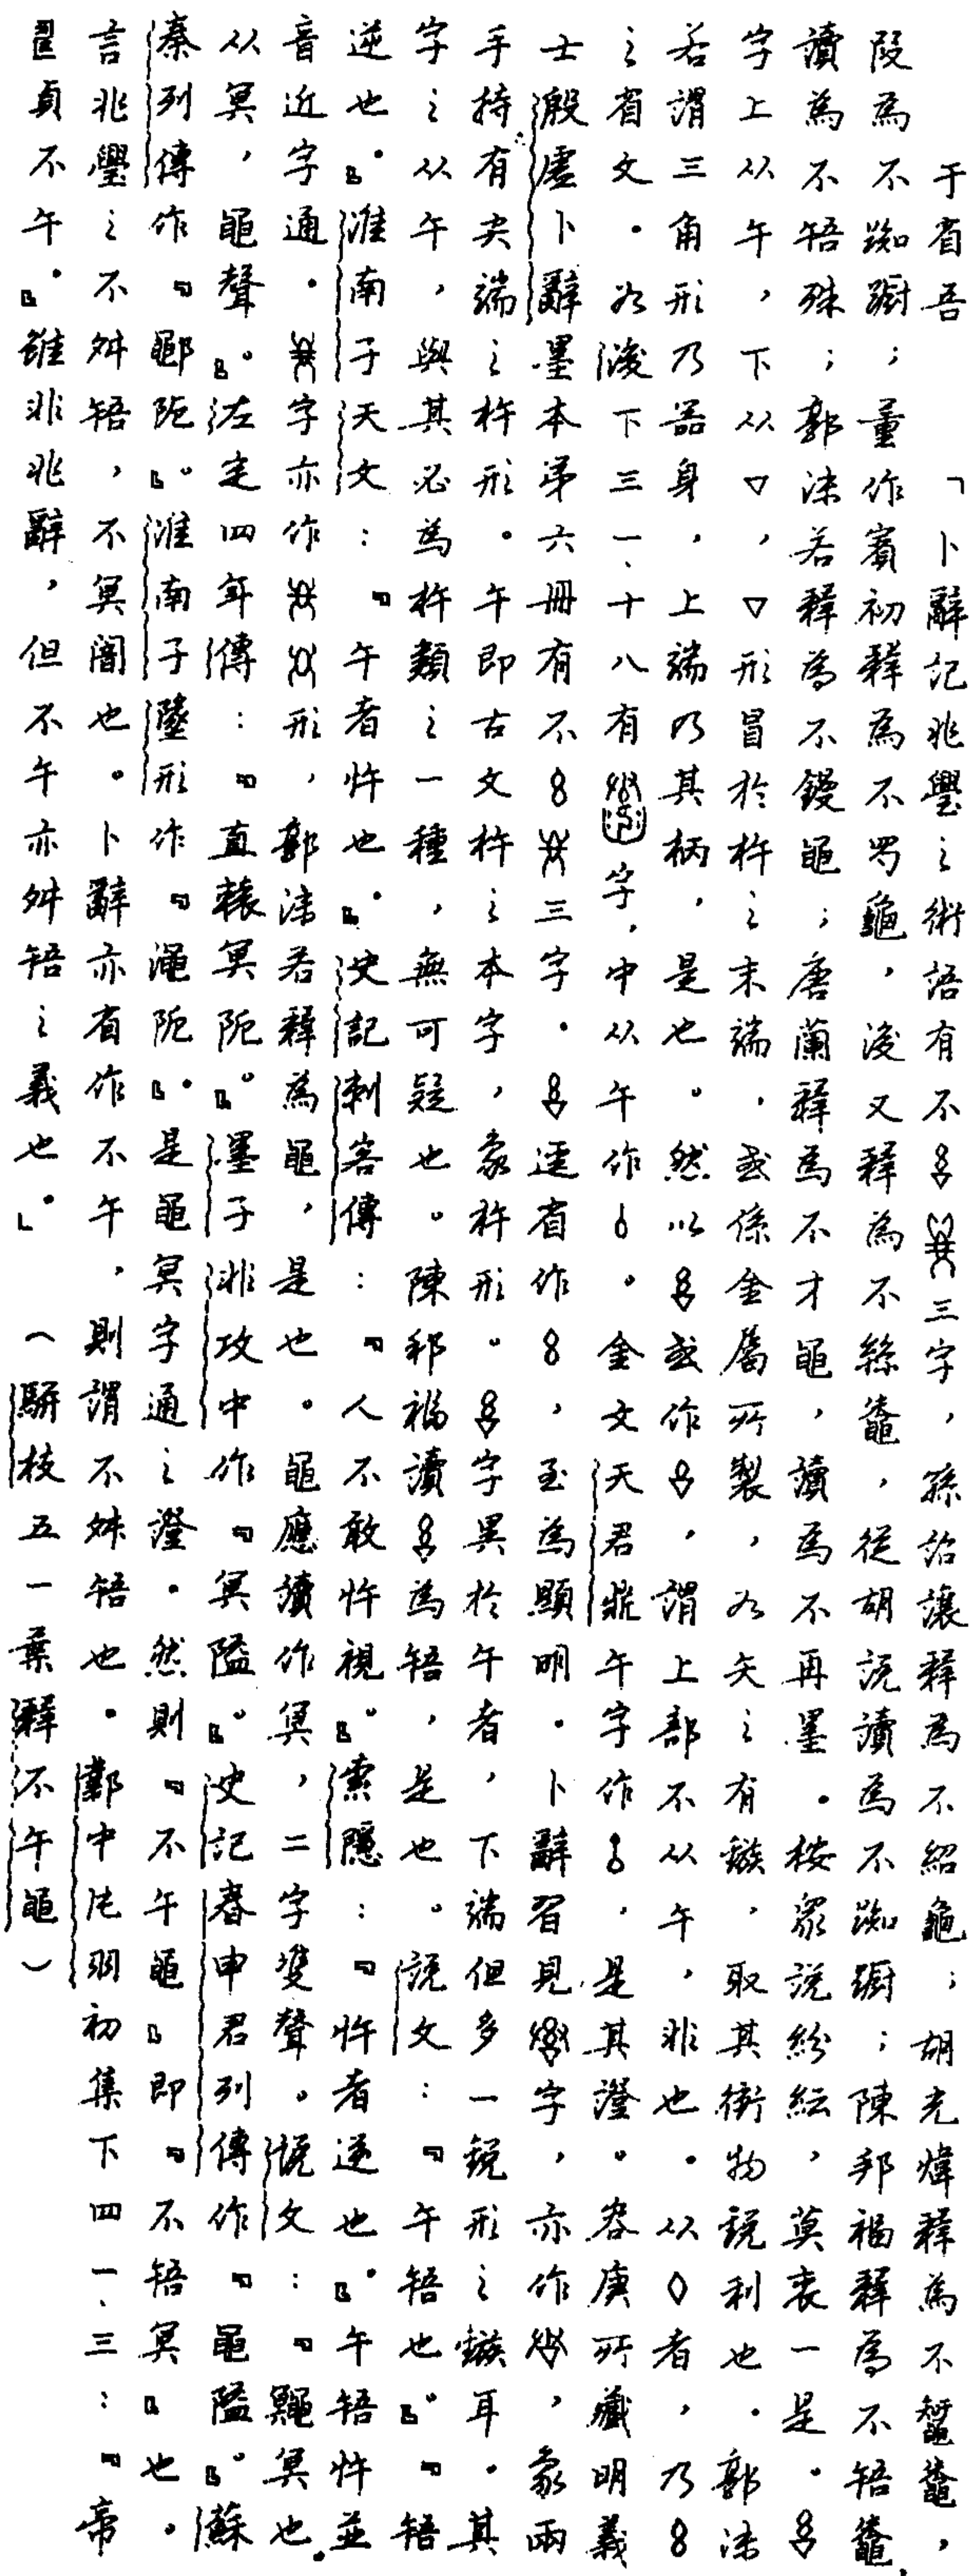 于省吾　「卜辭記兆璺之術語有不三字，孫詒讓釋為不紹龜；胡光煒釋為不鼄，
段為不踟躕；董作賓初釋為不龜，後又釋為不絲鼄，從胡說讀為不踟躕；陳邦福釋為不啎鼄，
讀為不啎殊；郭沫若釋為不鏝黽；唐蘭釋為不才黽，讀為不再墨。按眾說紛紜，莫衷一是。
字上从午，下从▽，▽形冒於杵之末端，或係金屬所製，如矢之有鏃，取其銜物銳利也。郭沫
若謂三角形乃器身，上端乃其柄，是也。然以或作，謂上部不从午，非也。从◊者，乃8
之省文。如後下三一、十八有字，中从午作。金文天君鼎午字作，是其證。容庚所藏明義
士殷虛卜辭墨本第六冊有不8三字。逕省作8，至為顯明。卜辭習見字，亦作，象兩
手持有尖端之杵形。午即古文杵之本字，象杵形。字異於午者，下端但多一銳形之鏃耳。其
字之从午，與其必為杵類之一種，無可疑也。陳邦福讀為啎，是也。說文：『午啎也』。『啎
逆也』。淮南子天文：『午者忤也』。史記刺客傳：『人不敢忤視』。索隱：『忤者逆也』。午啎忤並
音近字通。字亦作形，郭沫若釋為黽，是也。黽應讀作冥，二字雙聲。說文：『鼆冥也。
从冥，黽聲』。左定四年傳：『直轅冥阨』。墨子非攻中作『冥隘』。史記春申君列傳作『黽隘』。蘇
秦列傳作『鄳阨』。淮南子墬形作『澠阨』。是黽冥字通之證。然則『不午黽』即『不啎冥』也。
言兆璺之不舛啎，不冥闇也。卜辭亦省作不午，則謂不舛啎也。鄴中片羽初集下四一、三：『帝
貞不午』。雖非兆辭，但不午亦舛啎之義也」。（駢枝五一葉釋不午黽）